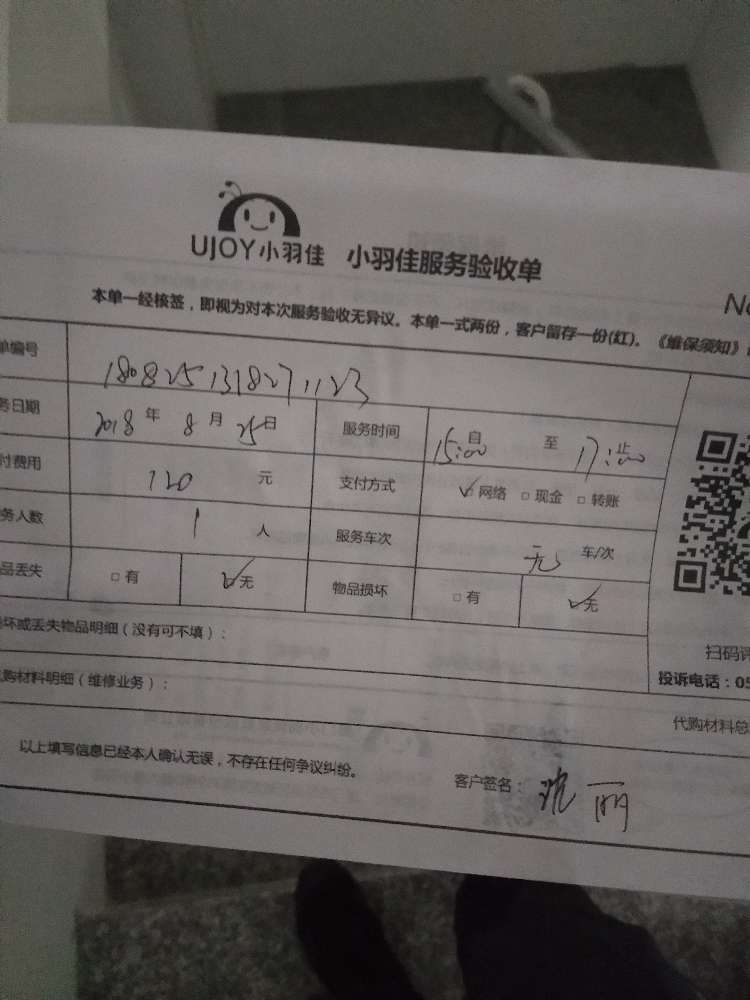 UJOY小羽佳 小羽佳服务验收单
No
本单一经核签，即视为对本次服务验收无异议。本单一式两份，客户留存一份(红)。《维保须知》
单编号 1808251318271123
务日期 2018 年 8 月 25 日 服务时间 15:00 自 至 17:00 止
付费用 120 元 支付方式 ☑网络 □现金 □转账
务人数 1 人 服务车次 无 车/次
品丢失 □有 ☑无 物品损坏 □有 ☑无
坏或丢失物品明细（没有可不填）：
扫码评
购材料明细（维修业务）：
投诉电话：05
代购材料总
以上填写信息已经本人确认无误，不存在任何争议纠纷。 客户签名：沈丽